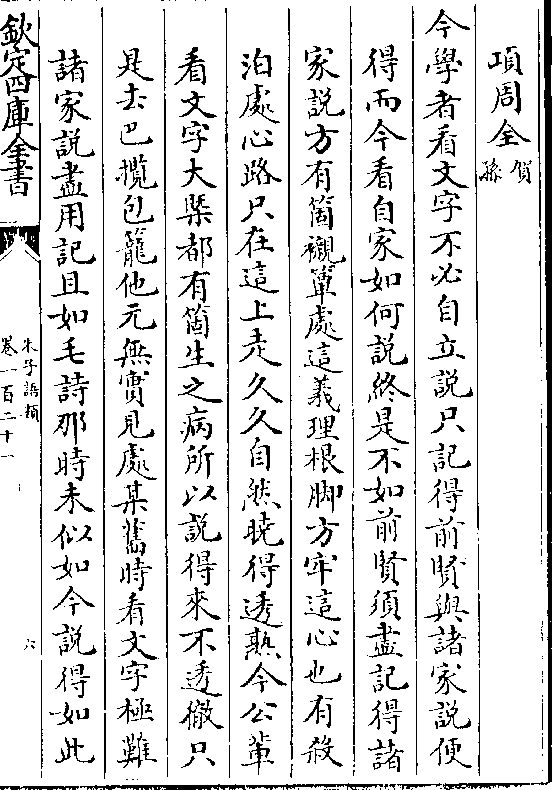 項周全賀孫
今學者看文字不必自立說只記得前賢與諸家說便
得而今看自家如何說終是不如前賢須盡記得諸
家說方有箇襯簟處這義理根脚方牢這心也有殺
泊處心路只在這上走久久自然曉得透熟今公輩
看文字大槩都有箇生之病所以說得來不透徹只
是去巴攬包籠他元無實見處某舊時看文字極難
諸家說盡用記且如毛詩那時未似如今說得如此
欽定四庫全書
朱子語類
卷一百二十一
六